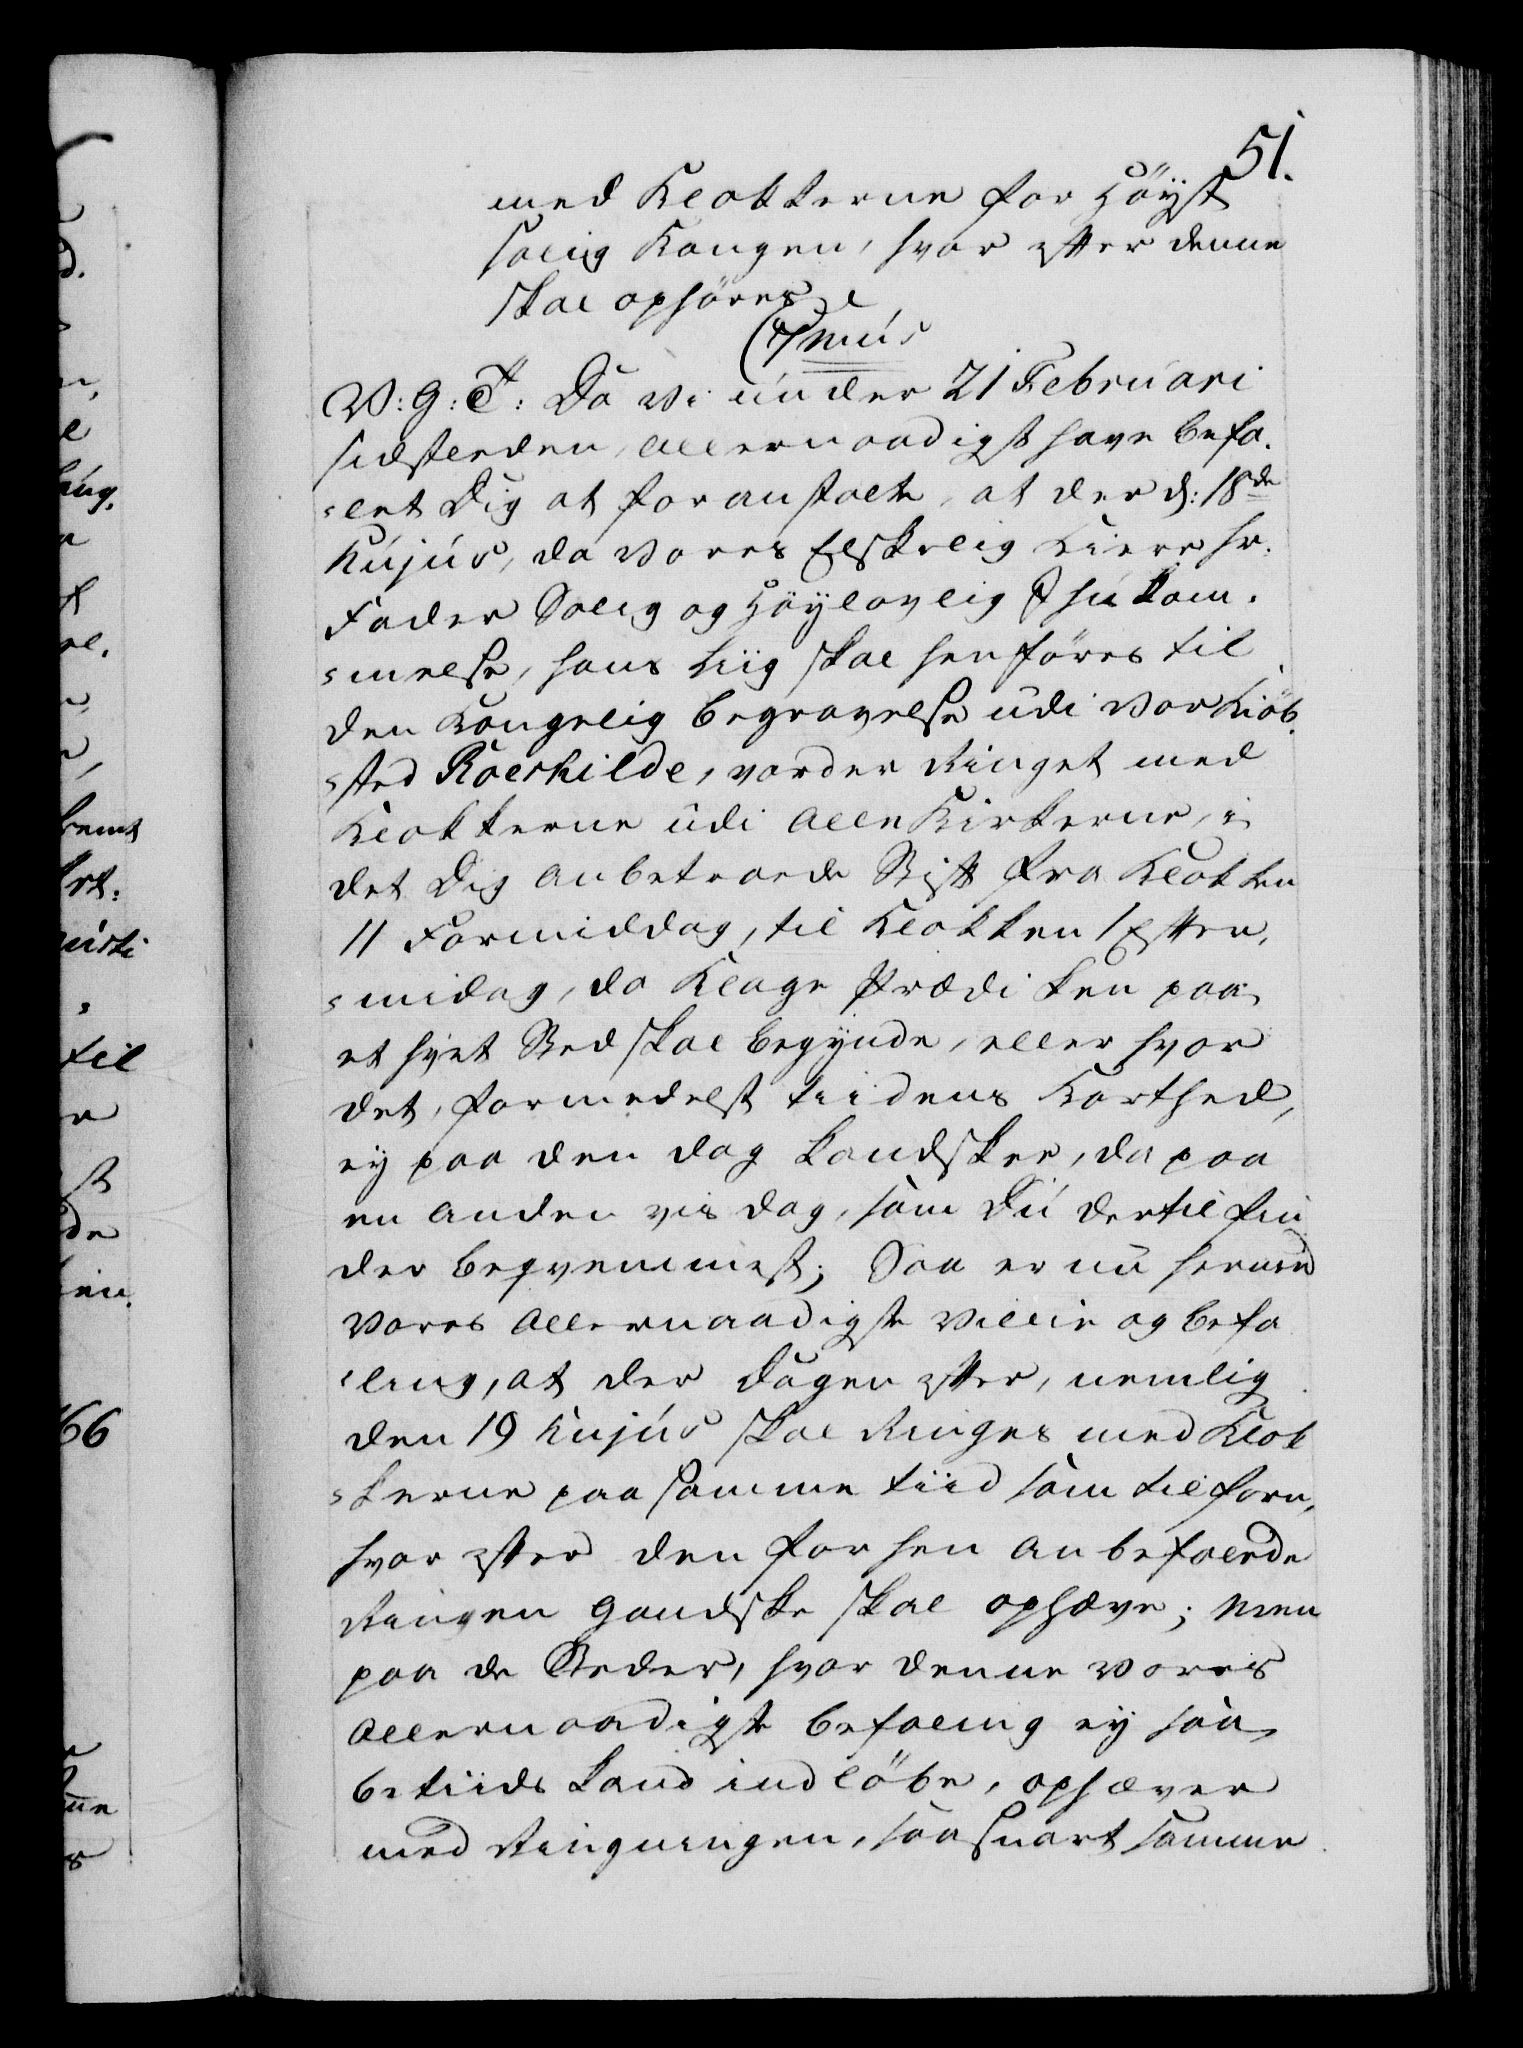 51.
med Klokkerne for Höyst
salig Kongen, hvor efter denne
skal ophöres
(Tmus
V: G: T: Da Vi under 21 Februari
sidstleden, allernaadigst have befa¬
=let Dig at foranstalte, at der d: 18de
hujus, da Vores Elskelig Kiere Hr.
Fader Salig og Höylovlig Ihukom¬
=melse, hans Liig skal henföres til
den Kongelig Begravelse udi Vor Kiöb¬
=sted Roeskilde, vorder Ringet med
Klokkerne udi alle Kirkerne, i
det Dig anbetroede Stift fra Klokken
11 Formiddag, til Klokken 1 Efter¬
=midag, da Klage Prædiken paa
et hvert Sted skal begynde, eller hvor
det, formedelst tiidens Korthed,
ey paa den dag kand skee, da paa
en anden vis dag, som Du dertil fin
der beqvemmest; Saa er nu hermed
Vores allernaadigste Villie og Befa
=ling, at der Dagen efter, nemlig
den 19 hujus skal Ringes med Klok
=kerne paa samme tiid som tilforn,
hvor efter den forhen anbefalede
Ringen gandske skal ophæve; men
paa de Steder, hvor denne Vores
allernaadigste Befaling ey saa
betiids kand indlöbe, ophæver
med Ringningen, saa snart samme
til
66